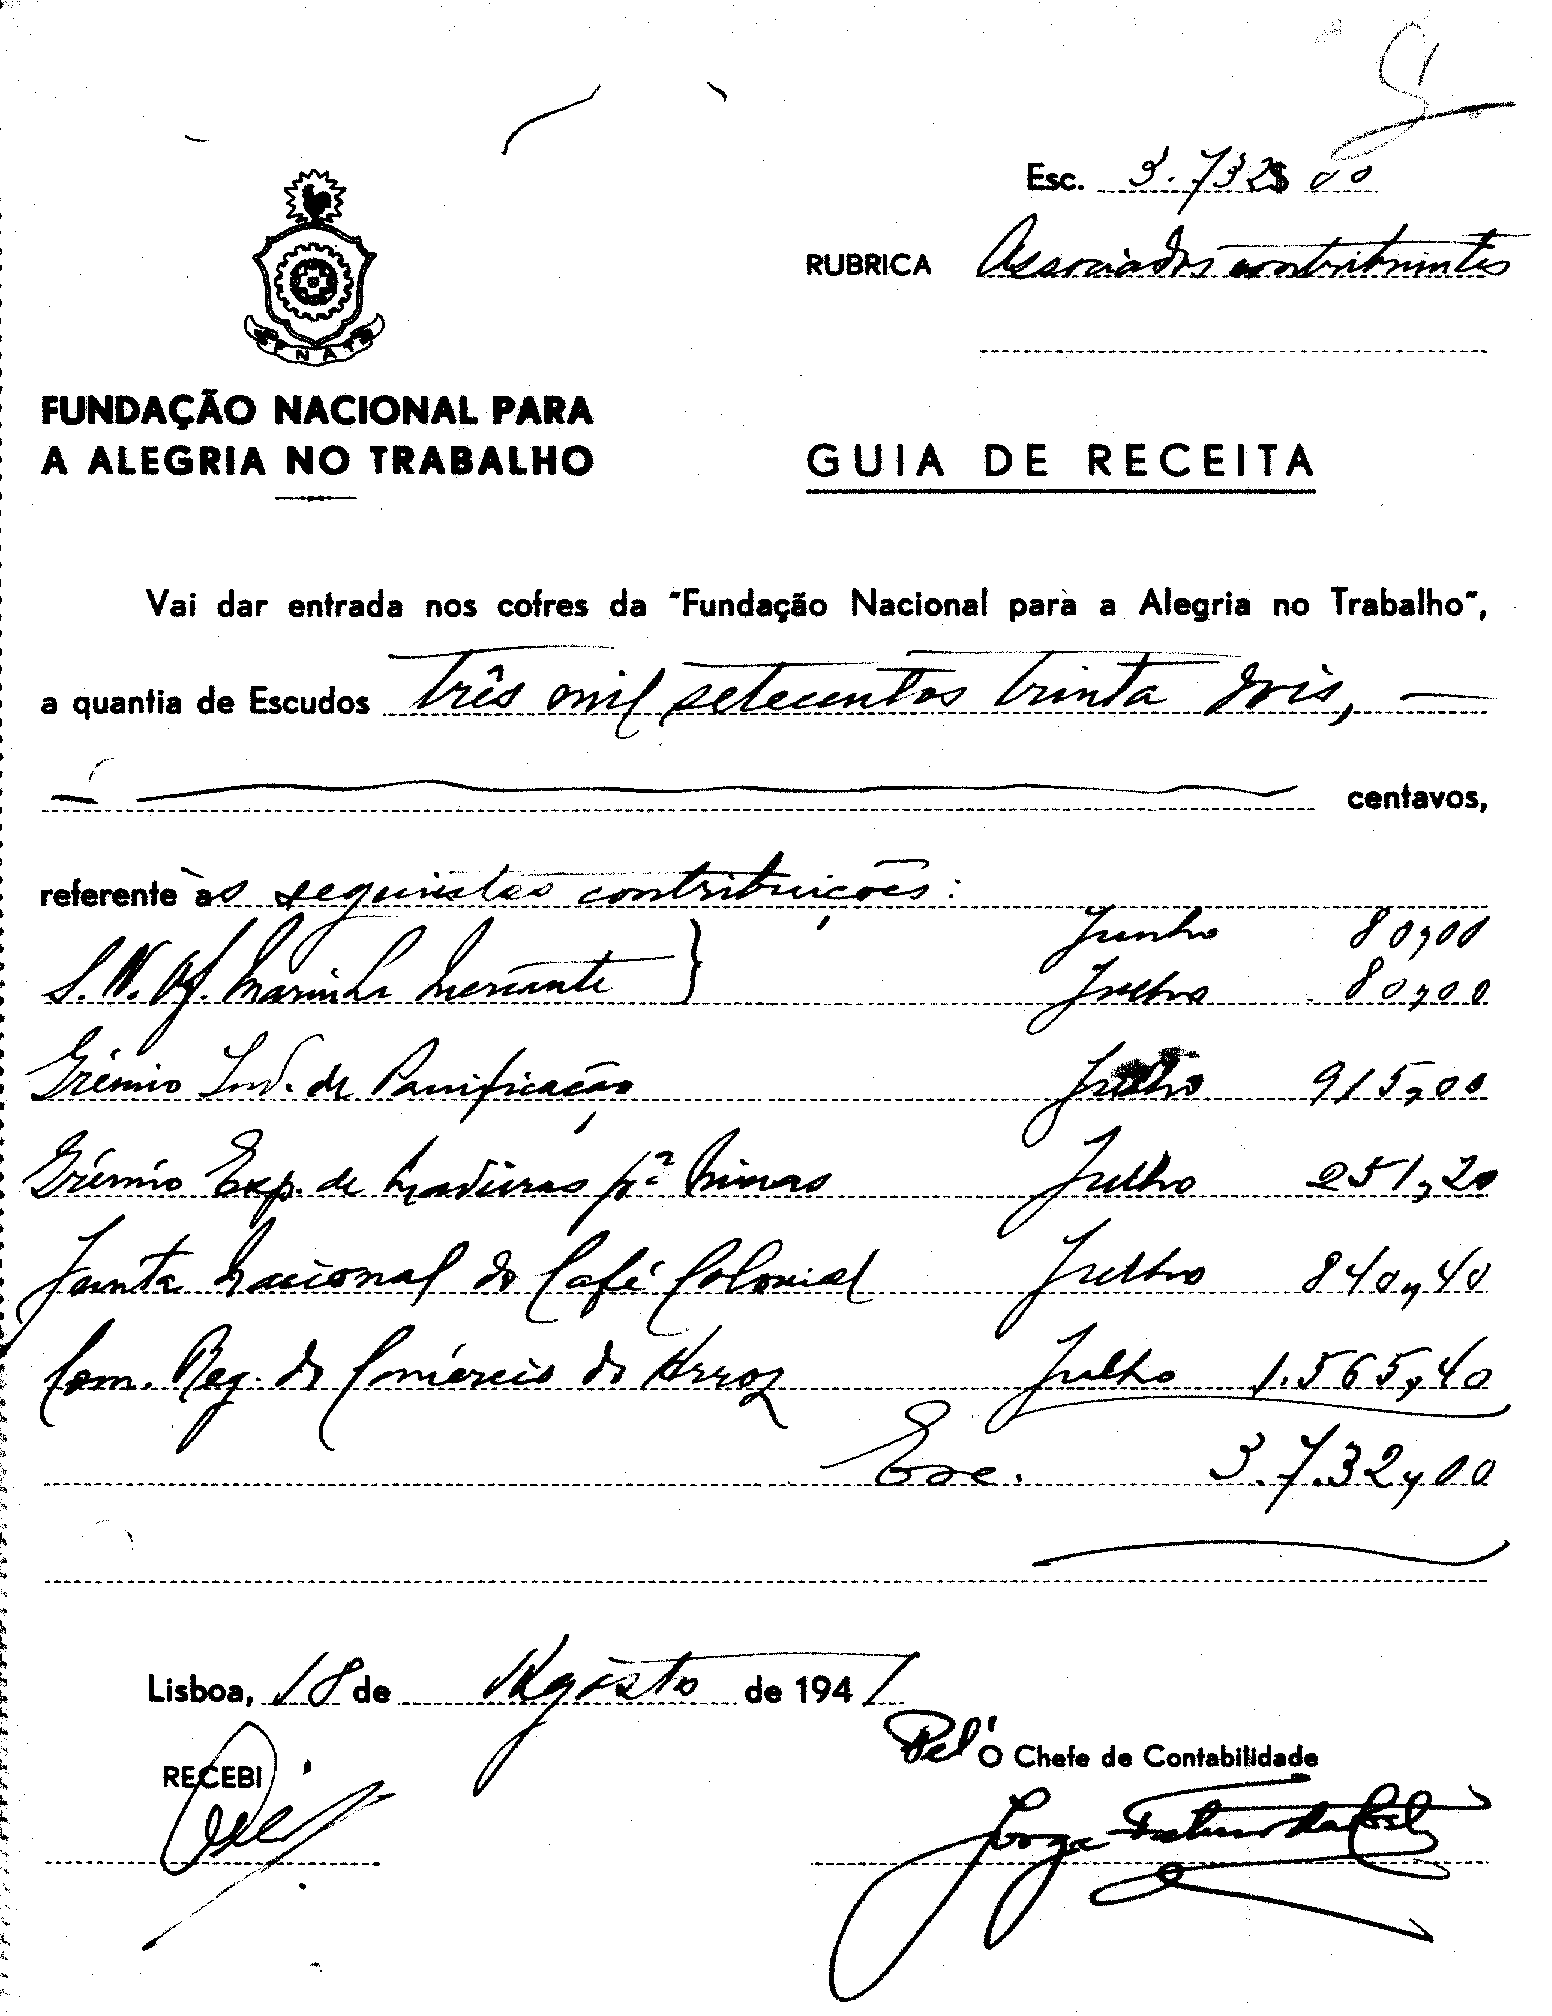 Esc. 3.732$00
RUBRICA Associados contribuintes
FNAT
FUNDAÇÃO NACIONAL PARA
A ALEGRIA NO TRABALHO
GUIA DE RECEITA
Vai dar entrada nos cofres da "Fundação Nacional para a Alegria no Trabalho",
a quantia de Escudos três mil setecentos trinta dois, —
— centavos,
referente às seguintes contribuições:
Junho 80,00
S. N. Of. Marinha Mercante } Julho 80,00
Grémio Ind. de Panificação Julho 915,00
Grémio Exp. de Madeiras pª Minas Julho 251,20
Junta Nacional do Café Colonial Julho 840,40
Com. Reg. do Comércio do Arroz Julho 1.565,40
Esc. 3.732,00
Lisboa, 18 de Agosto de 1941
Pel' O Chefe de Contabilidade
RECEBI
Jorge da Costa